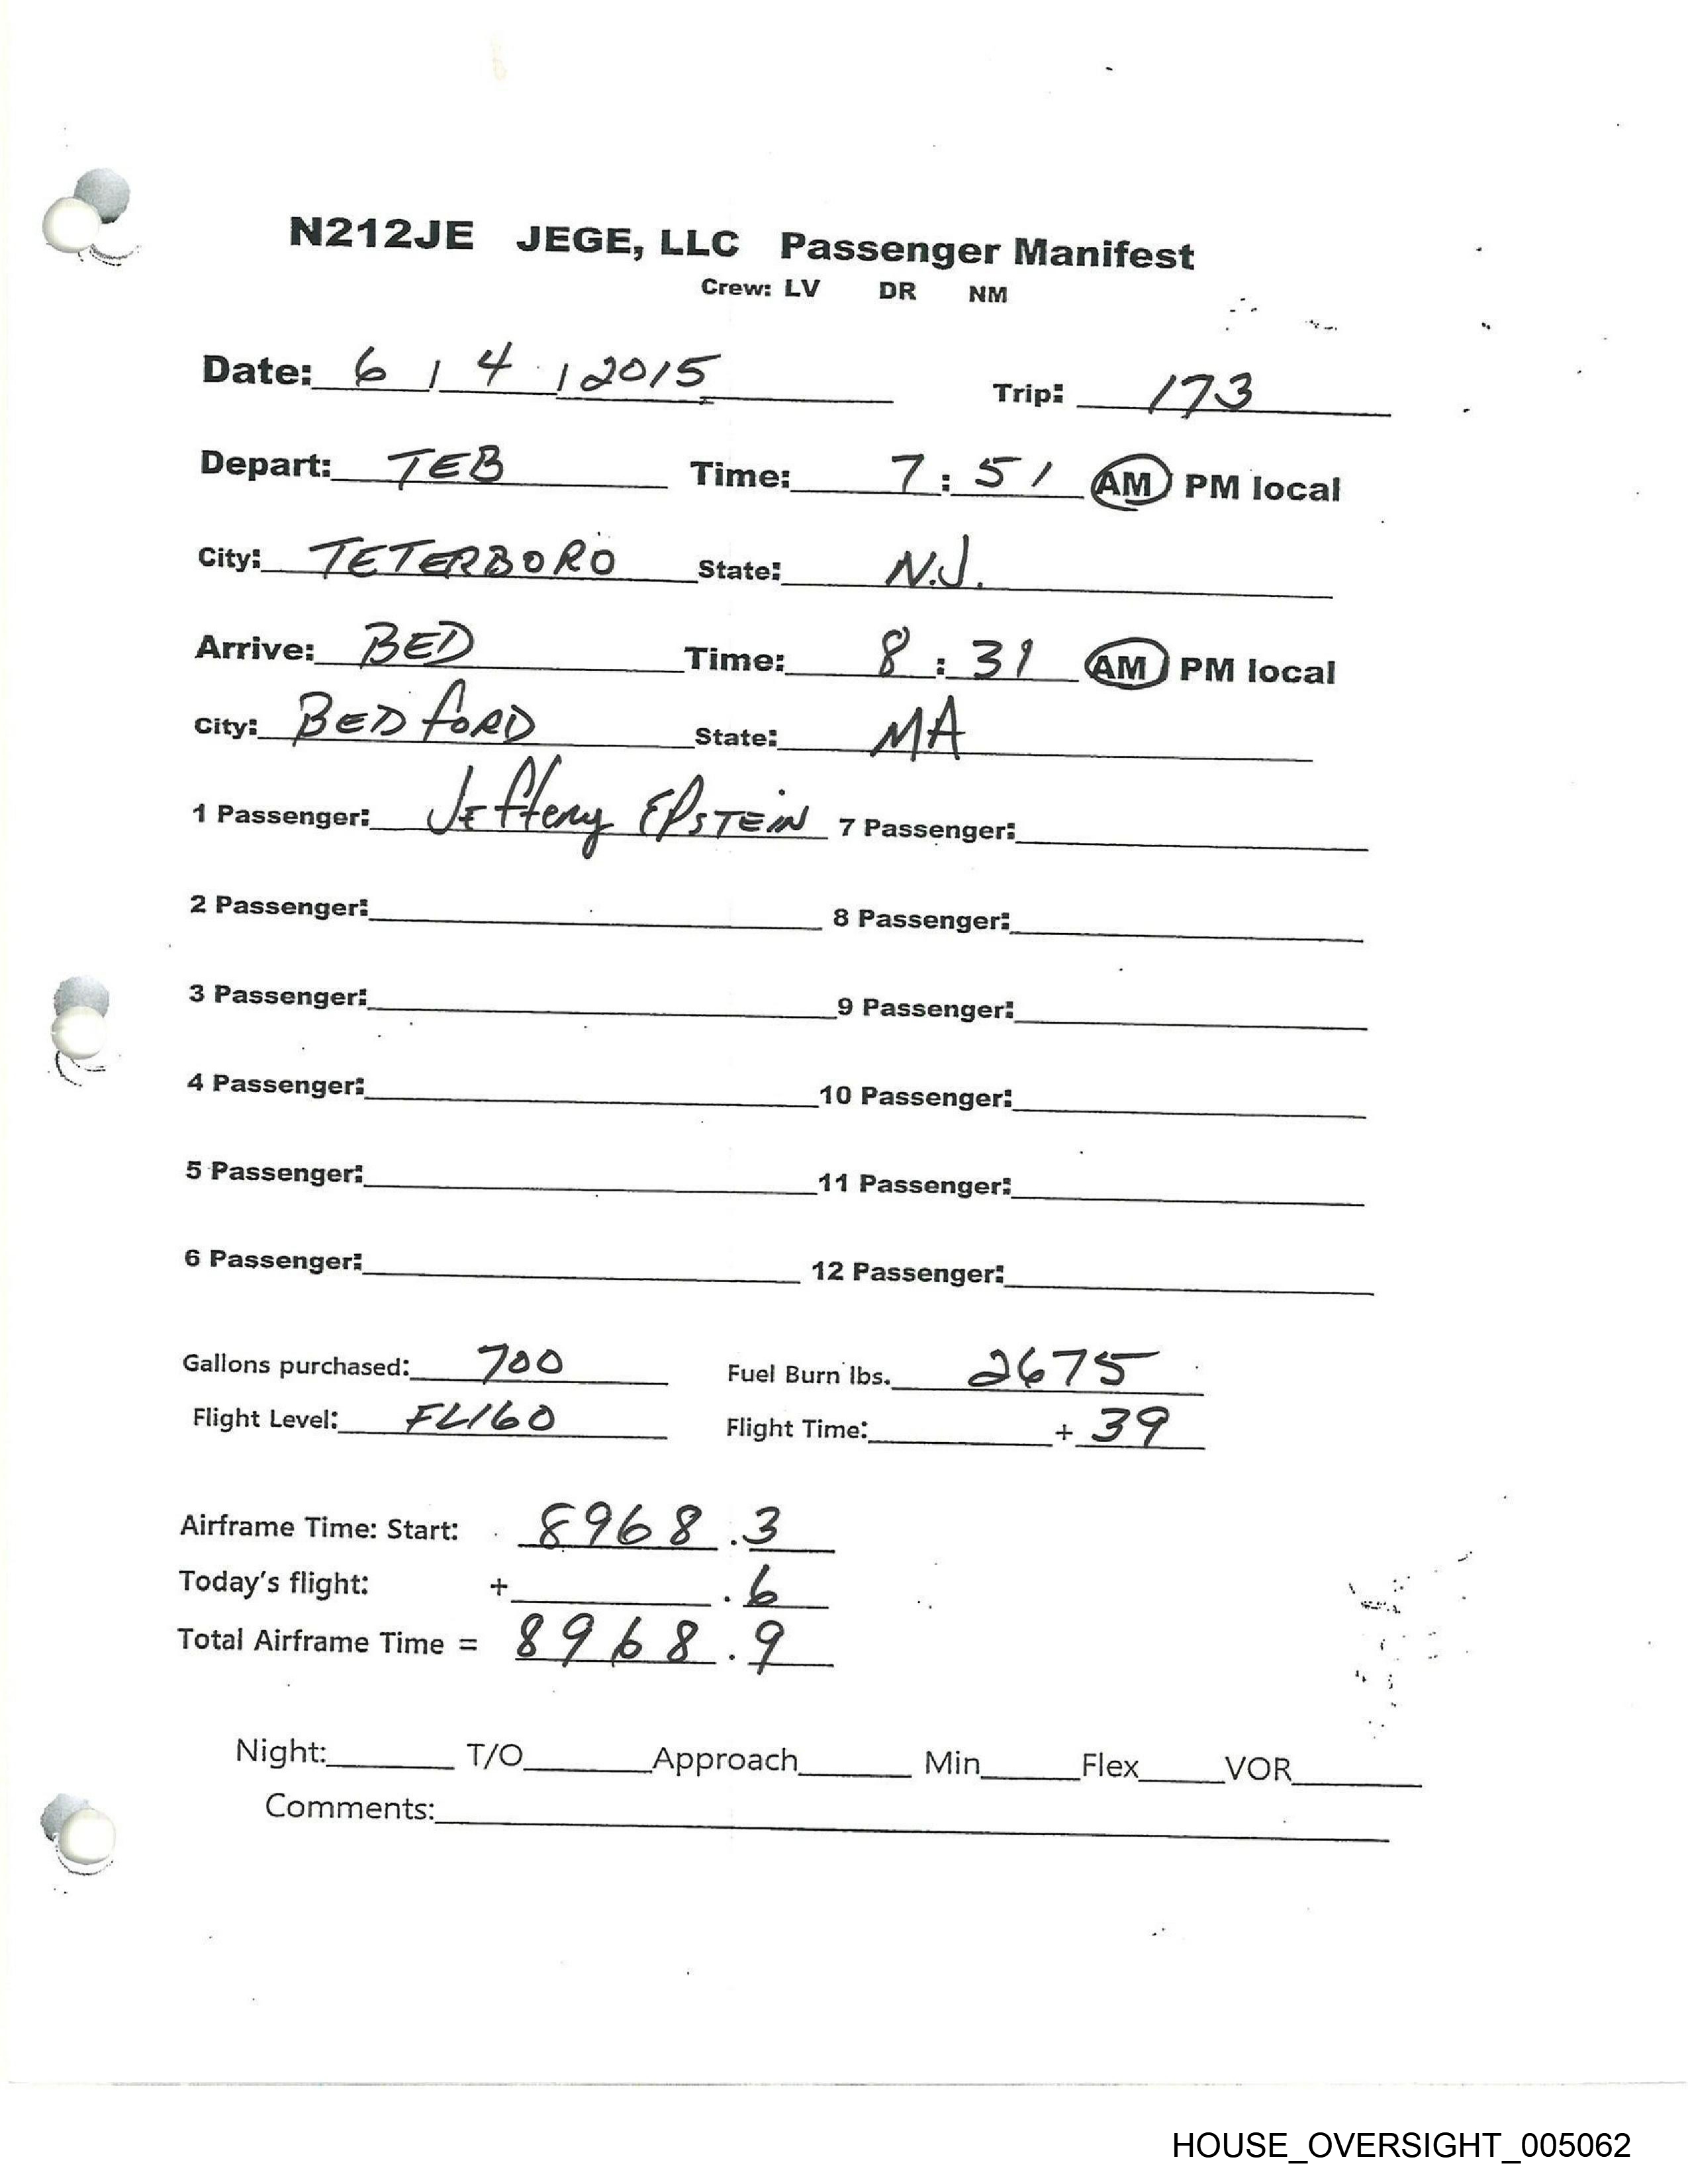 N212JE JEGE, LLC Passenger Manifest
Crew: LV DR NM
Date: 6 / 4 / 2015 Trip: 173
Depart: TEB Time: 7:51 AM PM local
City: TETERBORO State: N.J.
Arrive: BED Time: 8:31 AM PM local
City: BEDfORD State: MA
1 Passenger: JEffery EPSTEIN 7 Passenger:
2 Passenger: 8 Passenger:
3 Passenger: 9 Passenger:
4 Passenger: 10 Passenger:
5 Passenger: 11 Passenger:
6 Passenger: 12 Passenger:
Gallons purchased: 700 Fuel Burn lbs. 2675
Flight Level: FL160 Flight Time: + 39
Airframe Time: Start: 8968.3
Today's flight: + .6
Total Airframe Time = 8968.9
Night: T/O Approach Min Flex VOR
Comments:
HOUSE_OVERSIGHT_005062